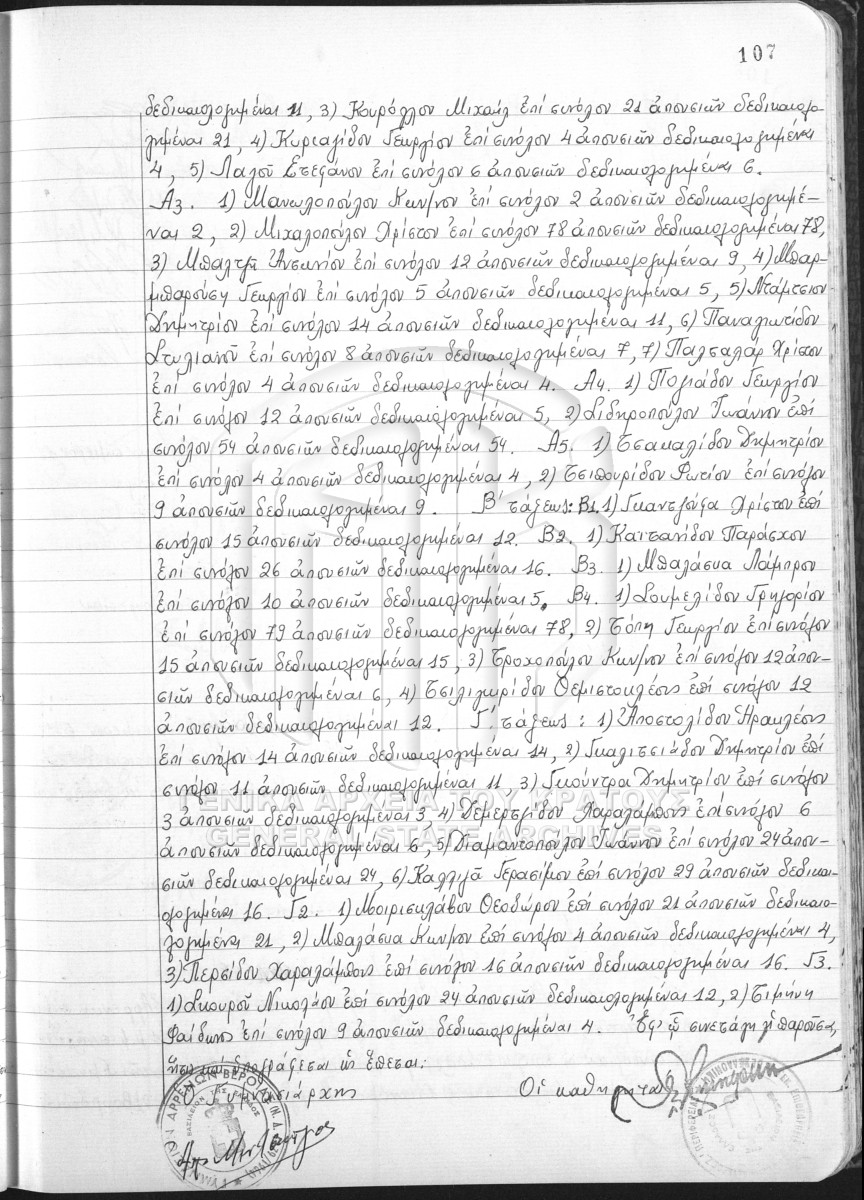 107
δεδικαιολογημέναι 11, 3) Κουρόγλου Μιχαήλ ἐπί συνόλου 21 ἀπουσιῶν δεδικαιολο-
γημέναι 21, 4) Κυριαζίδου Γεωργίου ἐπί συνόλου 4 ἀπουσιῶν δεδικαιολογημέναι
4, 5) Λαλοῦ Στεφάνου ἐπί συνόλου 6 ἀπουσιῶν δεδικαιολογημέναι 6.
Α3. 1) Μανωλοπούλου Κων/νου ἐπί συνόλου 2 ἀπουσιῶν δεδικαιολογημέ-
ναι 2, 2) Μιχαλοπούλου Χρίστου ἐπί συνόλου 78 ἀπουσιῶν δεδικαιολογημέναι 78,
3) Μπαλτζῆ Ἀντωνίου ἐπί συνόλου 12 ἀπουσιῶν δεδικαιολογημέναι 9, 4) Μπαρ-
μπαρούση Γεωργίου ἐπί συνόλου 5 ἀπουσιῶν δεδικαιολογημέναι 5, 5) Ντάμτσιου
Δημητρίου ἐπί συνόλου 14 ἀπουσιῶν δεδικαιολογημέναι 11, 6) Παναγιωτίδου
Στυλιανοῦ ἐπί συνόλου 8 ἀπουσιῶν δεδικαιολογημέναι 7, 7) Πατσαλᾶρ Χρίστου
ἐπί συνόλου 4 ἀπουσιῶν δεδικαιολογημέναι 4. Α4. 1) Πογιάδου Γεωργίου
ἐπί συνόλου 12 ἀπουσιῶν δεδικαιολογημέναι 5, 2) Σιδηροπούλου Ἰωάννου ἐπί
συνόλου 54 ἀπουσιῶν δεδικαιολογημέναι 54. Α5. 1) Τσακαλίδου Δημητρίου
ἐπί συνόλου 4 ἀπουσιῶν δεδικαιολογημέναι 4, 2) Τσιπουρίδου Φωτίου ἐπί συνόλου
9 ἀπουσιῶν δεδικαιολογημέναι 9. Β΄ τάξεως: Β1. 1) Γκαντζούρα Χρίστου ἐπί
συνόλου 15 ἀπουσιῶν δεδικαιολογημέναι 12. Β2. 1) Καϊτανίδου Παράσχου
ἐπί συνόλου 26 ἀπουσιῶν δεδικαιολογημέναι 16. Β3. 1) Μπαλάσκα Λάμπρου
ἐπί συνόλου 10 ἀπουσιῶν δεδικαιολογημέναι 5. Β4. 1) Σουμελίδου Γρηγορίου
ἐπί συνόλου 79 ἀπουσιῶν δεδικαιολογημέναι 78, 2) Τόπη Γεωργίου ἐπί συνόλου
15 ἀπουσιῶν δεδικαιολογημέναι 15, 3) Τροχοπούλου Κων/νου ἐπί συνόλου 12 ἀπου-
σιῶν δεδικαιολογημέναι 6, 4) Τσιλιγκιρίδου Θεμιστοκλέους ἐπί συνόλου 12
ἀπουσιῶν δεδικαιολογημέναι 12. Γ΄. τάξεως: 1) Ἀποστολίδου Ἡρακλέους
ἐπί συνόλου 14 ἀπουσιῶν δεδικαιολογημέναι 14, 2) Γκαλιτσιάδου Δημητρίου ἐπί
συνόλου 11 ἀπουσιῶν δεδικαιολογημέναι 11, 3) Γκούντρα Δημητρίου ἐπί συνόλου
3 ἀπουσιῶν δεδικαιολογημέναι 3, 4) Δεμερτζίδου Χαραλάμπους ἐπί συνόλου 6
ἀπουσιῶν δεδικαιολογημέναι 6, 5) Διαμαντοπούλου Ἰωάννου ἐπί συνόλου 24 ἀπου-
σιῶν δεδικαιολογημέναι 24, 6) Καλλιγᾶ Γερασίμου ἐπί συνόλου 29 ἀπουσιῶν δεδικαι-
ολογημέναι 16. Γ2. 1) Μοιρισκλάβου Θεοδώρου ἐπί συνόλου 21 ἀπουσιῶν δεδικαιο-
λογημέναι 21, 2) Μπαλάσκα Κων/νου ἐπί συνόλου 4 ἀπουσιῶν δεδικαιολογημέναι 4,
3) Περσίδου Χαραλάμπους ἐπί συνόλου 16 ἀπουσιῶν δεδικαιολογημέναι 16. Γ3.
1) Σκουροῦ Νικολάου ἐπί συνόλου 24 ἀπουσιῶν δεδικαιολογημέναι 12, 2) Τιμήνη
Φαίδωνος ἐπί συνόλου 9 ἀπουσιῶν δεδικαιολογημέναι 4. Ἐφ' ᾧ συνετάγη ἡ παροῦσα,
ἥτις καί ὑπογράφεται ὡς ἕπεται:
Ὁ Γυμνασιάρχης Οἱ καθηγηταί
ΓΕΝΙΚΑ ΑΡΧΕΙΑ ΤΟΥ ΚΡΑΤΟΥΣ
GENERAL STATE ARCHIVES